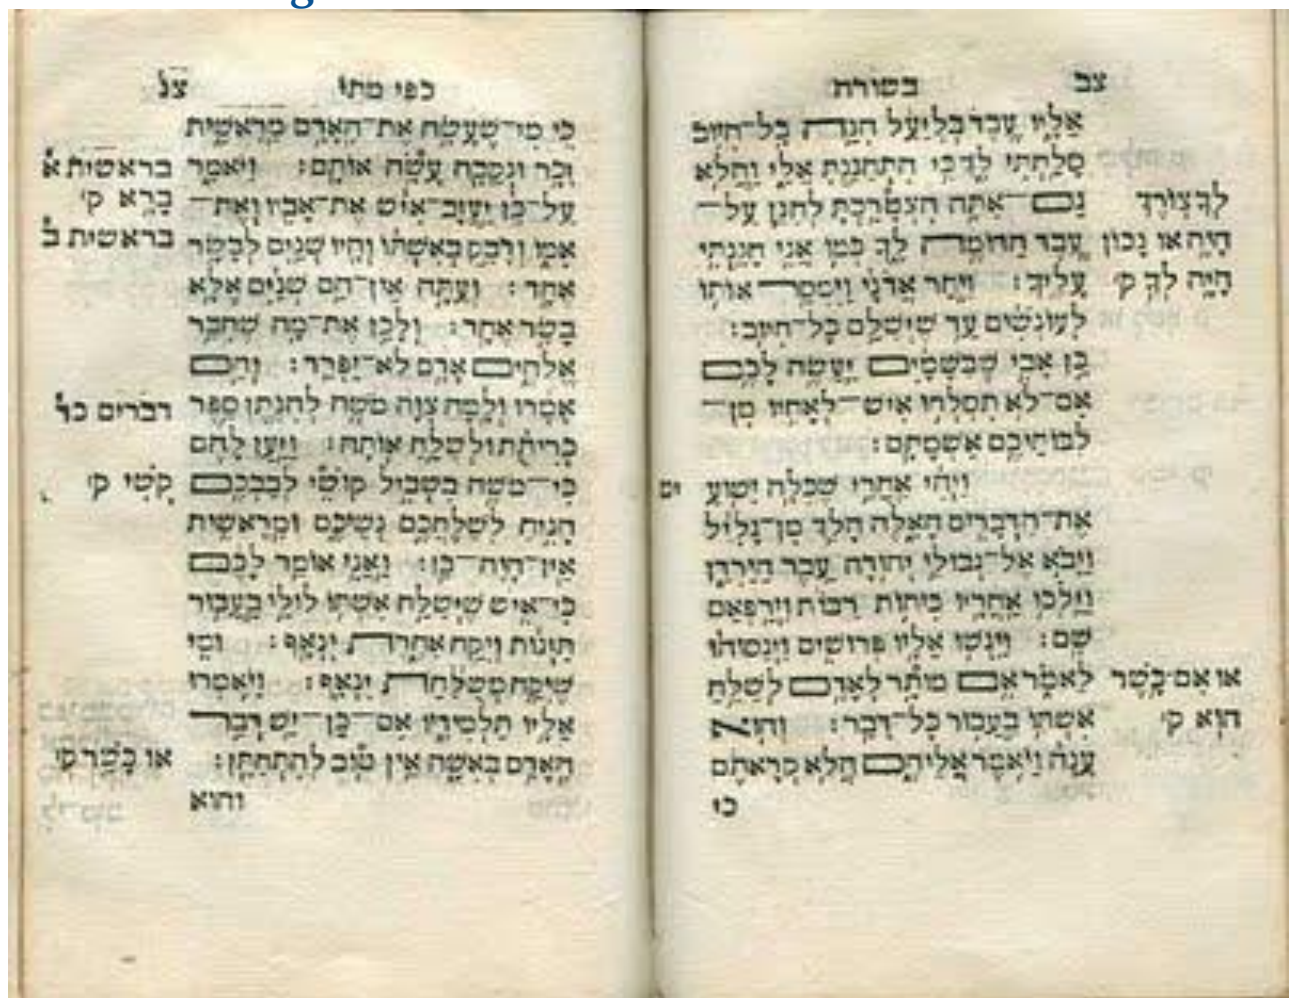 צב בשורה
אליו עבד בליעל הנה כל־חיוב
סלחתי לך כי התחננת אלי והלא
גם אתה הצטרכת לחנן על־
עבד חרומה לך כמו אני חננתי
עליך׃ ויחר אדני וימסר אותו
לעונשים עד שישלם כל־חיוב׃
כן אבי שבשמים יעשה לכם
אם־לא תסלחו איש לאחיו מן־
לבותיכם אשמתם׃
ויהי אחרי שכלה ישוע
את־הדברים האלה הלך מן־גליל
ויבא אל־גבולי יהודה עבר הירדן
וילכו אחריו כיתות רבות וירפאם
שם׃ ויגשו אליו פרושים וינסוהו
לאמר אם מותר לאדם לשלח
אשתו בעבור כל־דבר׃ והוא
ענה ויאמר אליהם הלא קראתם
כי
לך צורך
היה או נכון
היה לך ק׳
יט
או אם כשר
הוא ק׳
כפי מתי צג
כי מי־שעשה את־האדם מראשית
זכר ונקבה עשה אותם׃ ויאמר
על־כן יעזוב־איש את־אביו ואת־
אמו ודבק באשתו והיו שנים לבשר
אחד׃ ועתה אין־הם שנים אלא
בשר אחד׃ ולכן את־מה שחבר
אלהים אדם לא־יפרד׃ והם
אמרו ולמה צוה משה להנתן ספר
כריתת ולשלח אותה׃ ויען להם
כי־משה בשביל קושי לבבכם
הניח לשלחכם נשיכם ומראשית
אין־היה־כן׃ ואני אומר לכם
כי־איש שישלח אשתו לולי בעבור
תזנות ויקח אחרת ינאף׃ ומי
שיקח משלחת ינאף׃ ויאמרו
אליו תלמידיו אם־כן־יש דבר
האדם באשה אין טוב להתחתן׃
והוא
בראשית א
ברא ק׳
בראשית ב
דברים כד
קשי ק׳
או כשר ק׳